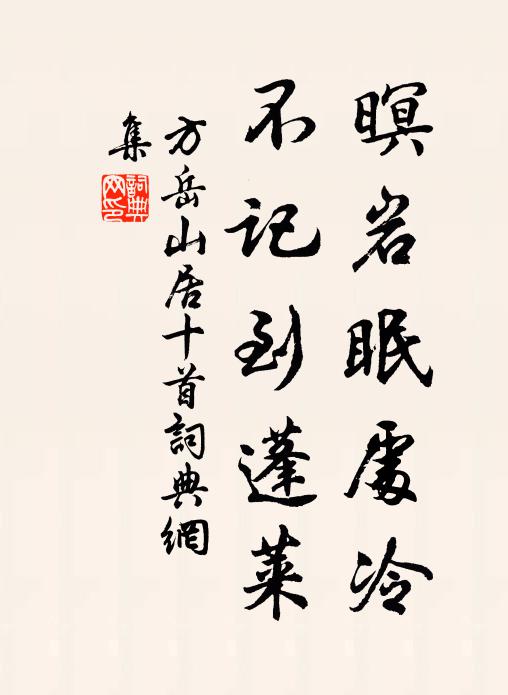 暝岩眠處冷
不記到蓬萊
方岳山居十首詞典網
集
詞典網印